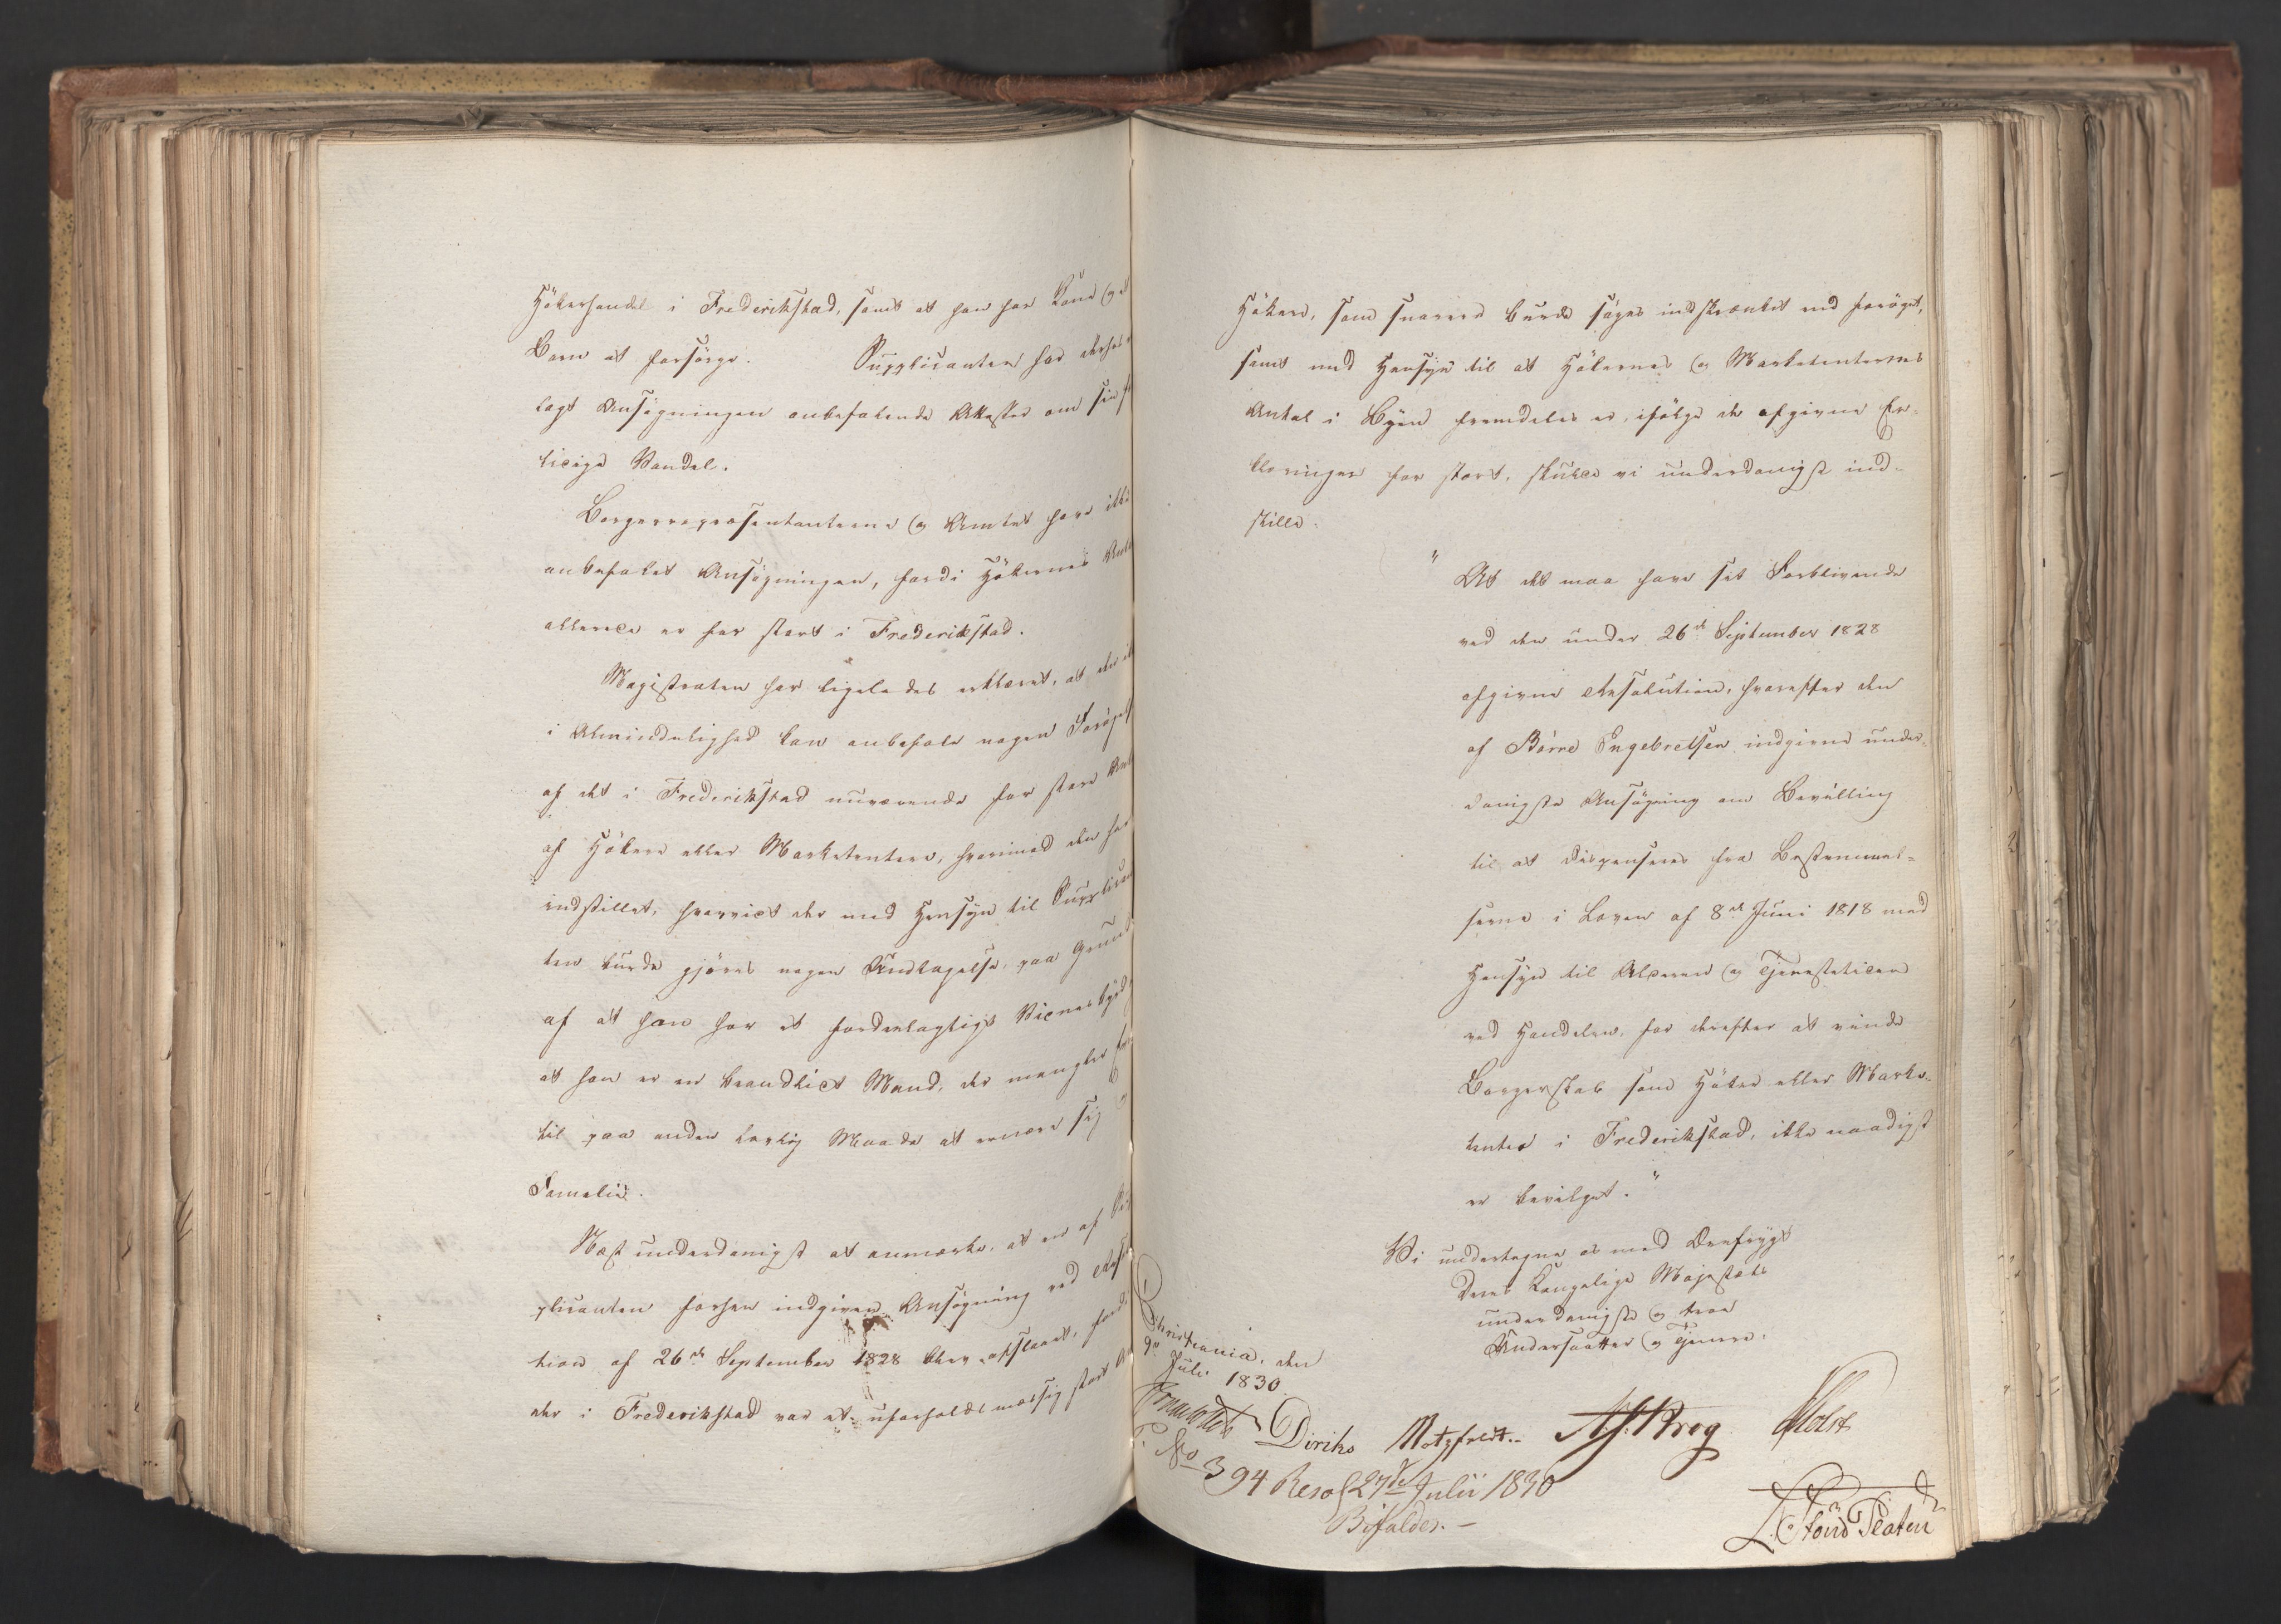 Hökerhandel i Frederikstad, samt at han har Kone og et
Barn at forsörge. Supplicanten har derhos
lagt Ansögningen anbefalende Attester om sin
ticige Vandel.
Borgerrepræsentanterne og Amtet have ikke
anbefalet Ansögningen, fordi Hökernes
allerede er for stort i Frederikstad.
Magistraten har ligeledes erklæret, at den
i Almindelighed kan anbefale nogen Forögelse
af det i Frederikstad nuværende for store
af Hökere eller Marketentere, hvorimod den har
indstillet, hvorvidt der med Hensyn til Supplican
ten burde gjöres nogen Undtagelse, paa Grund
af at han har et fordeelagtigt Vidnesbyrd,
at han er en brændkiet Mand, der mangler
til paa anden lovlig Maade at ernære sig
Familie.
Næst underdanigst at anmærke, at en af Sup
plicanten forhen indgiven Ansögning ved Reso
tion af 26de September 1828 blev afslaaet, fordi
der i Frederikstad var et uforholdsmæssig stort
Hökere, som snarere burde söges indskrænket end foröget,
samt med Hensyn til at Hökernes og Marketenternes
Antal i Byen fremdeles er, ifölge de afgivne Er-
klæringer for stort, skulle vi underdanigst ind-
stille:
"At det maa have sit Forblivende
ved den under 26de September 1828
afgivne Resolution, hvorefter den
af Börre Engebretsen indgivne under-
danigste Ansögning om Bevilling
til at dispenseres fra Bestemmel-
serne i Loven af 8de Juni 1818 med
Hensyn til Alderen og Tjenestetiden
ved Handelen, for derefter at vinde
Borgerskab som Höker eller Marke-
tenter i Frederikstad, ikke naadigst
er bevilget."
Vi undertegne os med Ærefrygt
Deres Kongelige Majestæts
underdanigste og troe
Undersaatter og Tjenere.
Christiania, den
9de Juli 1830.
Diriks Motzfeldt. Krog Holst
No 394 Resol 27de Julii 1830
Bifaldes.—
L. Störud Platou